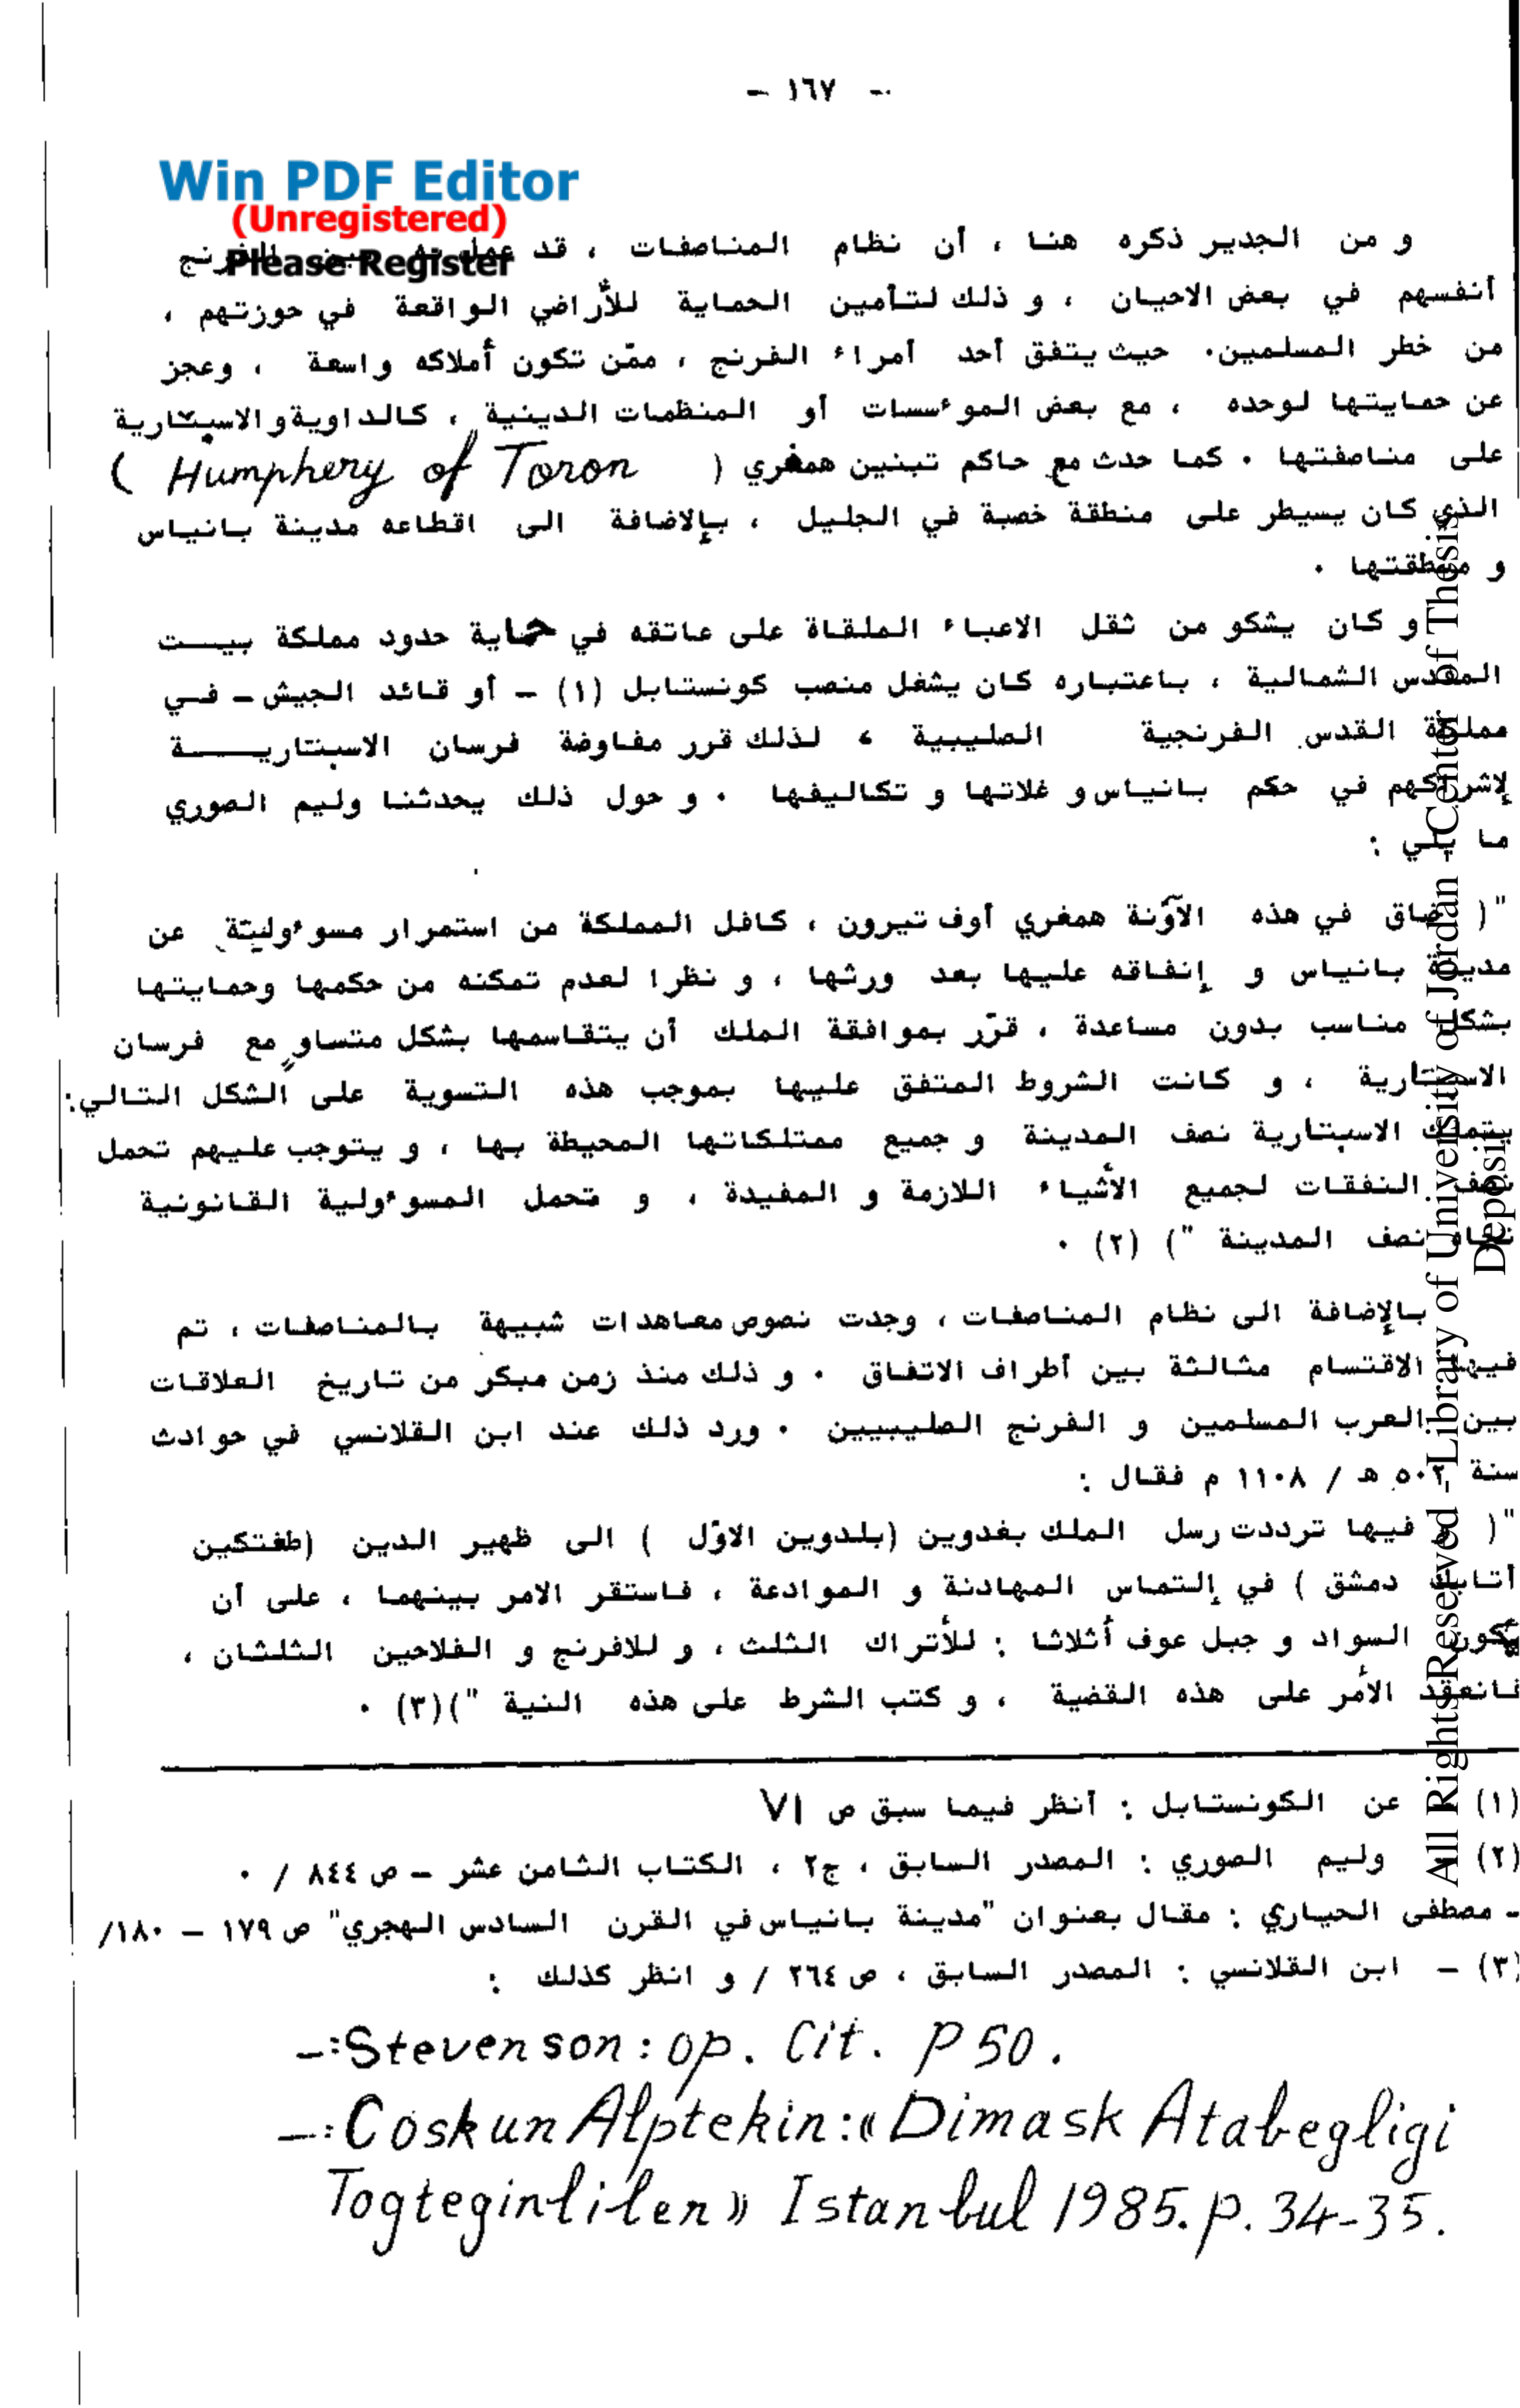 - ١٦٧ -
Win PDF Editor
(Unregistered)
Please Register
و من الجدير ذكره هنا ، أن نظام المناصفات ، قد بين الفرنج
أنفسهم في بعض الاحيان ، و ذلك لتأمين الحماية للأراضي الواقعة في حوزتهم ،
من خطر المسلمين. حيث يتفق أحد أمراء الفرنج ، ممّن تكون أملاكه واسعة ، وعجز
عن حمايتها لوحده ، مع بعض الموءسسات أو المنظمات الدينية ، كالداوية والاسبتارية
على مناصفتها . كما حدث مع حاكم تبنين همفري ( Humphery of Toron )
الذي كان يسيطر على منطقة خصبة في الجليل ، بالإضافة الى اقطاعه مدينة بانياس
و منطقتها .
و كان يشكو من ثقل الاعباء الملقاة على عاتقه في حماية حدود مملكة بيت
المقدس الشمالية ، باعتباره كان يشغل منصب كونستابل (١) - أو قائد الجيش - في
مملكة القدس الفرنجية الصليبية ، لذلك قرر مفاوضة فرسان الاسبتارية
لإشراكهم في حكم بانياس و غلاتها و تكاليفها . و حول ذلك يحدثنا وليم الصوري
ما يلي :
"( ضاق في هذه الآوّنة همغري أوف تيرون ، كافل المملكة من استمرار مسوءوليتة عن
مدينة بانياس و إنفاقه عليها بعد ورثها ، و نظرا لعدم تمكنه من حكمها وحمايتها
بشكل مناسب بدون مساعدة ، قرّر بموافقة الملك أن يتقاسمها بشكل متساوٍ مع فرسان
الاسبتارية ، و كانت الشروط المتفق عليها بموجب هذه التسوية على الشكل التالي:
يتملك الاسبتارية نصف المدينة و جميع ممتلكاتها المحيطة بها ، و يتوجب عليهم تحمل
نصف النفقات لجميع الأشياء اللازمة و المفيدة ، و تحمل المسوءولية القانونية
تجاه نصف المدينة ") (٢) .
بالإضافة الى نظام المناصفات ، وجدت نصوص معاهدات شبيهة بالمناصفات ، تم
فيها الاقتسام مثالثة بين أطراف الاتفاق . و ذلك منذ زمن مبكر من تاريخ العلاقات
بين العرب المسلمين و الفرنج الصليبيين . ورد ذلك عند ابن القلانسي في حوادث
سنة ٥٠٢ هـ / ١١٠٨ م فقال :
"( و فيها ترددت رسل الملك بغدوين (بلدوين الاوّل ) الى ظهير الدين (طغتكين
أتابك دمشق ) في إلتماس المهادنة و الموادعة ، فاستقر الامر بينهما ، على أن
يكون السواد و جبل عوف أثلاثا : للأتراك الثلث ، و للافرنج و الفلاحين الثلثان ،
فانعقد الأمر على هذه القضية ، و كتب الشرط على هذه النية ")(٣) .
(١) عن الكونستابل : أنظر فيما سبق ص ٧١
(٢) وليم الصوري : المصدر السابق ، ج٢ ، الكتاب الثامن عشر - ص ٨٤٤ / .
- مصطفى الحياري : مقال بعنوان "مدينة بانياس في القرن السادس الهجري" ص ١٧٩ - ١٨٠/
(٣) - ابن القلانسي : المصدر السابق ، ص ٢٦٤ / و انظر كذلك :
-:Stevenson: op. Cit. P 50.
-:Coskun Alptekin:«Dimask Atabegligi
Togteginliler» Istanbul 1985. p. 34-35.
All Rights Reserved - Library of University of Jordan - Center of Thesis
Deposit